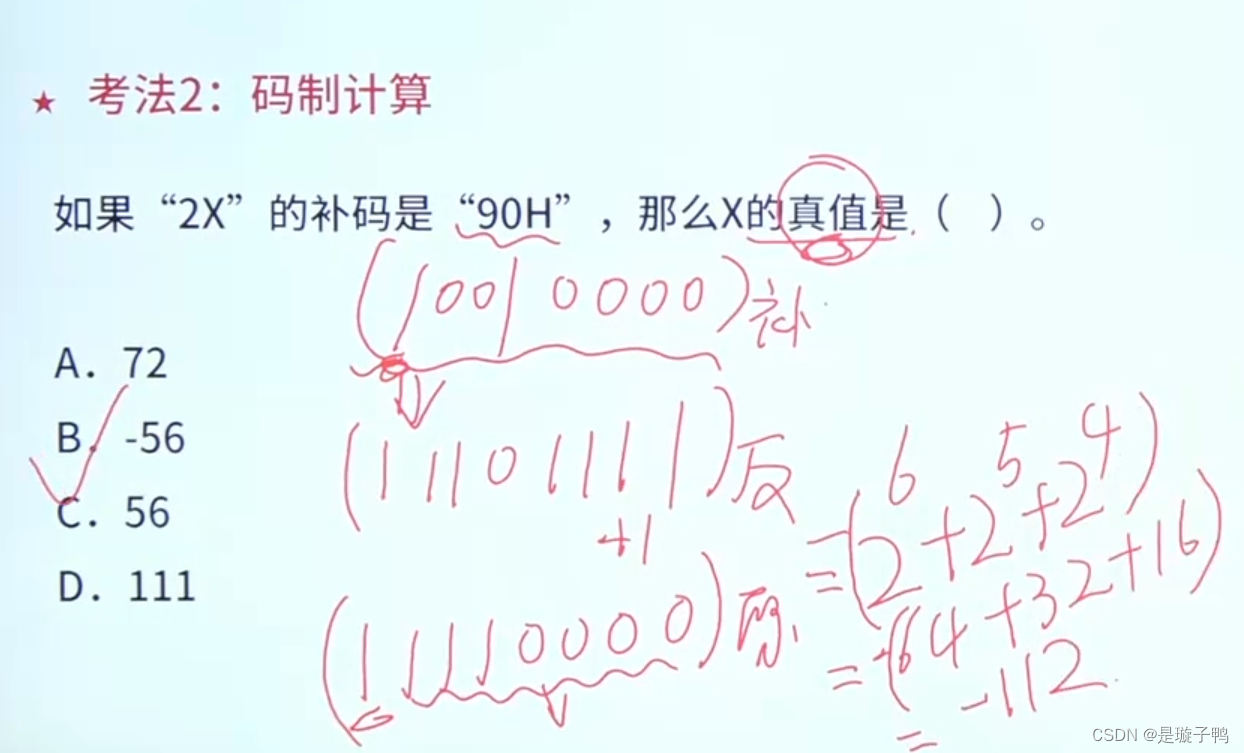 ★ 考法2：码制计算
如果“2X”的补码是“90H”，那么X的真值是（ ）。
(1001 0000)补
A．72
(11101111)反
B．-56
+1
C．56
(11110000)原
D．111
=-(2^6+2^5+2^4)
=-(64+32+16)
=-112
CSDN @是璇子鸭